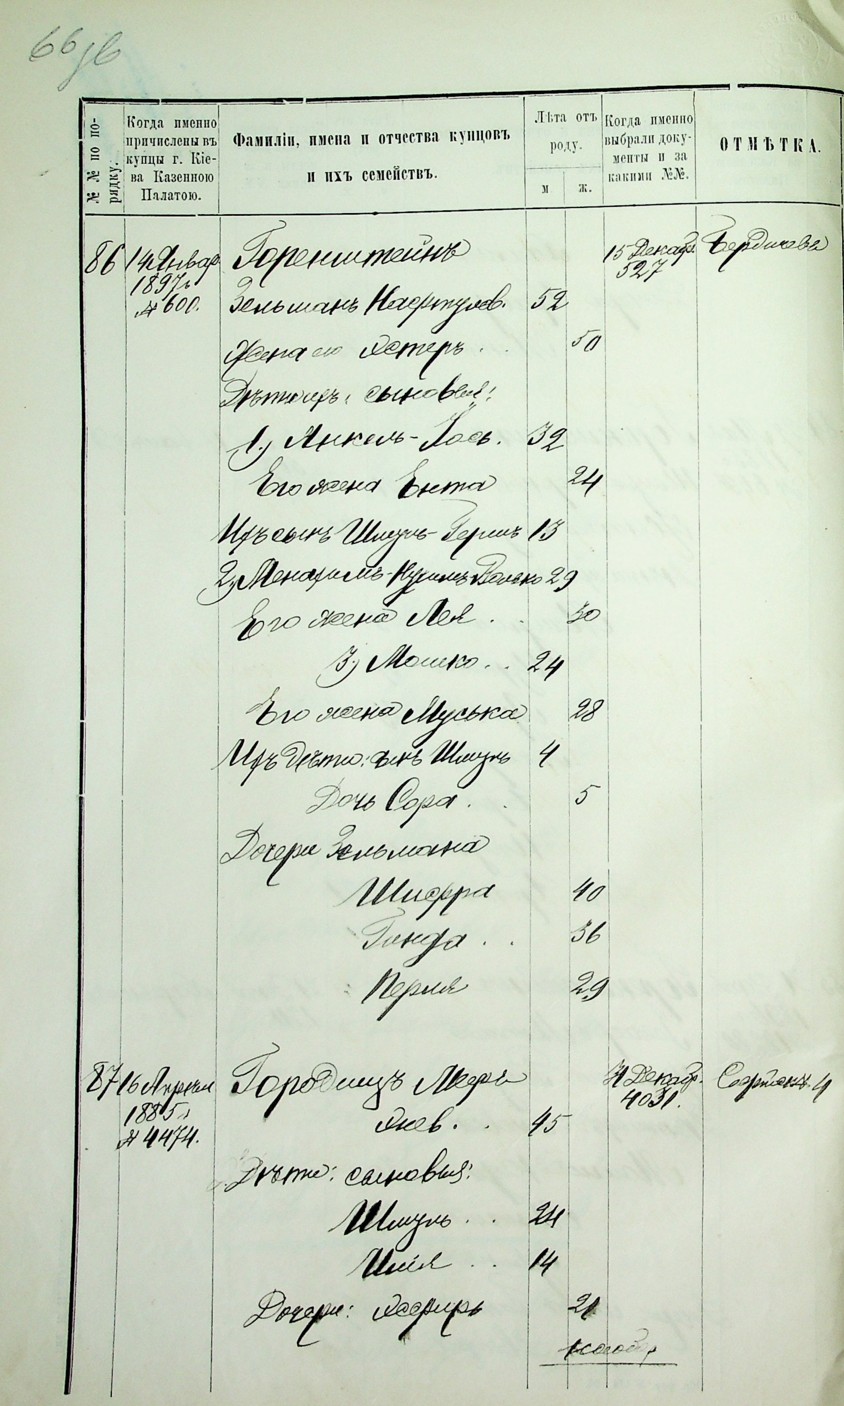 66 об
№№ по порядку.
Когда именно причислены въ купцы г. Кіева Казенною Палатою.
Фамиліи, имена и отчества купцовъ и ихъ семействъ.
Лѣта отъ роду.
м
ж.
Когда именно выбрали документы и за какими №№.
ОТМѢТКА.
86 14 Январ Горенштейнъ 15 Декабр Бердичева
1897 г 527
№ 600. Зельманъ Нафтулов. 52
Жена его Эстеръ . . 50
Дѣти ихъ: сыновья:
1.) Янкель-Іось. 32
Его жена Ента 24
Ихъ сынъ Шмуль-Гершъ 13
2) Менахимъ-Нухимъ Волько 29
Его жена Лея . . 30
3.) Мошко . . 24
Его жена Муська 28
Ихъ дѣти: сынъ Шмуль 4
Дочь Сора . . 5
Дочери Зельмана
Шифра 40
Гинда . . 36
Перля 29
87 16 Апрѣля Городищъ Меръ Декабр.
1885 г 4031.
№ 4474. Янкев. . 45
Дѣти: сыновья:
Шмуль . . 24
. . 14
Дочери: Эсфирь 21